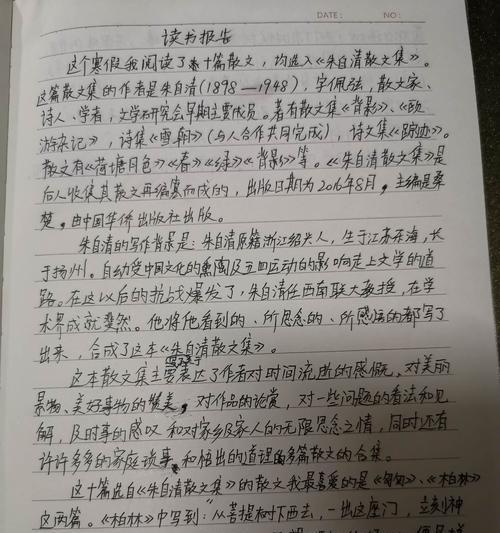 DATE: NO:
读书报告
这个寒假我阅读了十篇散文，均选入《朱自清散文集》。
这篇散文集的作者是朱自清(1898—1948)，字佩弦，散文家、
诗人、学者，文学研究会早期主要成员。著有散文集《背影》、《欧
游杂记》，诗集《雪朝》(与人合作共同完成)，诗文集《踪迹》。
散文有《荷塘月色》《春》《绿》《背影》等。《朱自清散文集》是
后人收集其散文再编纂而成的，出版日期为2016年8月，主编是秦
楚，由中国华侨出版社出版。
朱自清的写作背景是：朱自清原籍浙江绍兴人，生于江苏东海，长
于扬州。自幼受中国文化的熏陶及五四运动的影响走上文学的道
路。在这以后的抗战爆发了，朱自清任西南联大教授，在学
术界成就斐然。他将他看到的、所思念的、所感悟的都写了
出来，合成了这本《朱自清散文集》。
这本散文集主要表达了作者对时间流逝的感慨、对美丽
景物、美好事物的赞美，对作品的论赏，对一些问题的看法和见
解，及时事的感叹和对家乡及家人的无限思念之情，同时还有
许许多多的家庭琐事和悟出的道理的多篇散文的合集。
这十篇选自《朱自清散文集》的散文我最喜爱的是《匆匆》、《柏林》
这两篇。《柏林》中写到：从菩提树下西去，一出这座门，立刻神